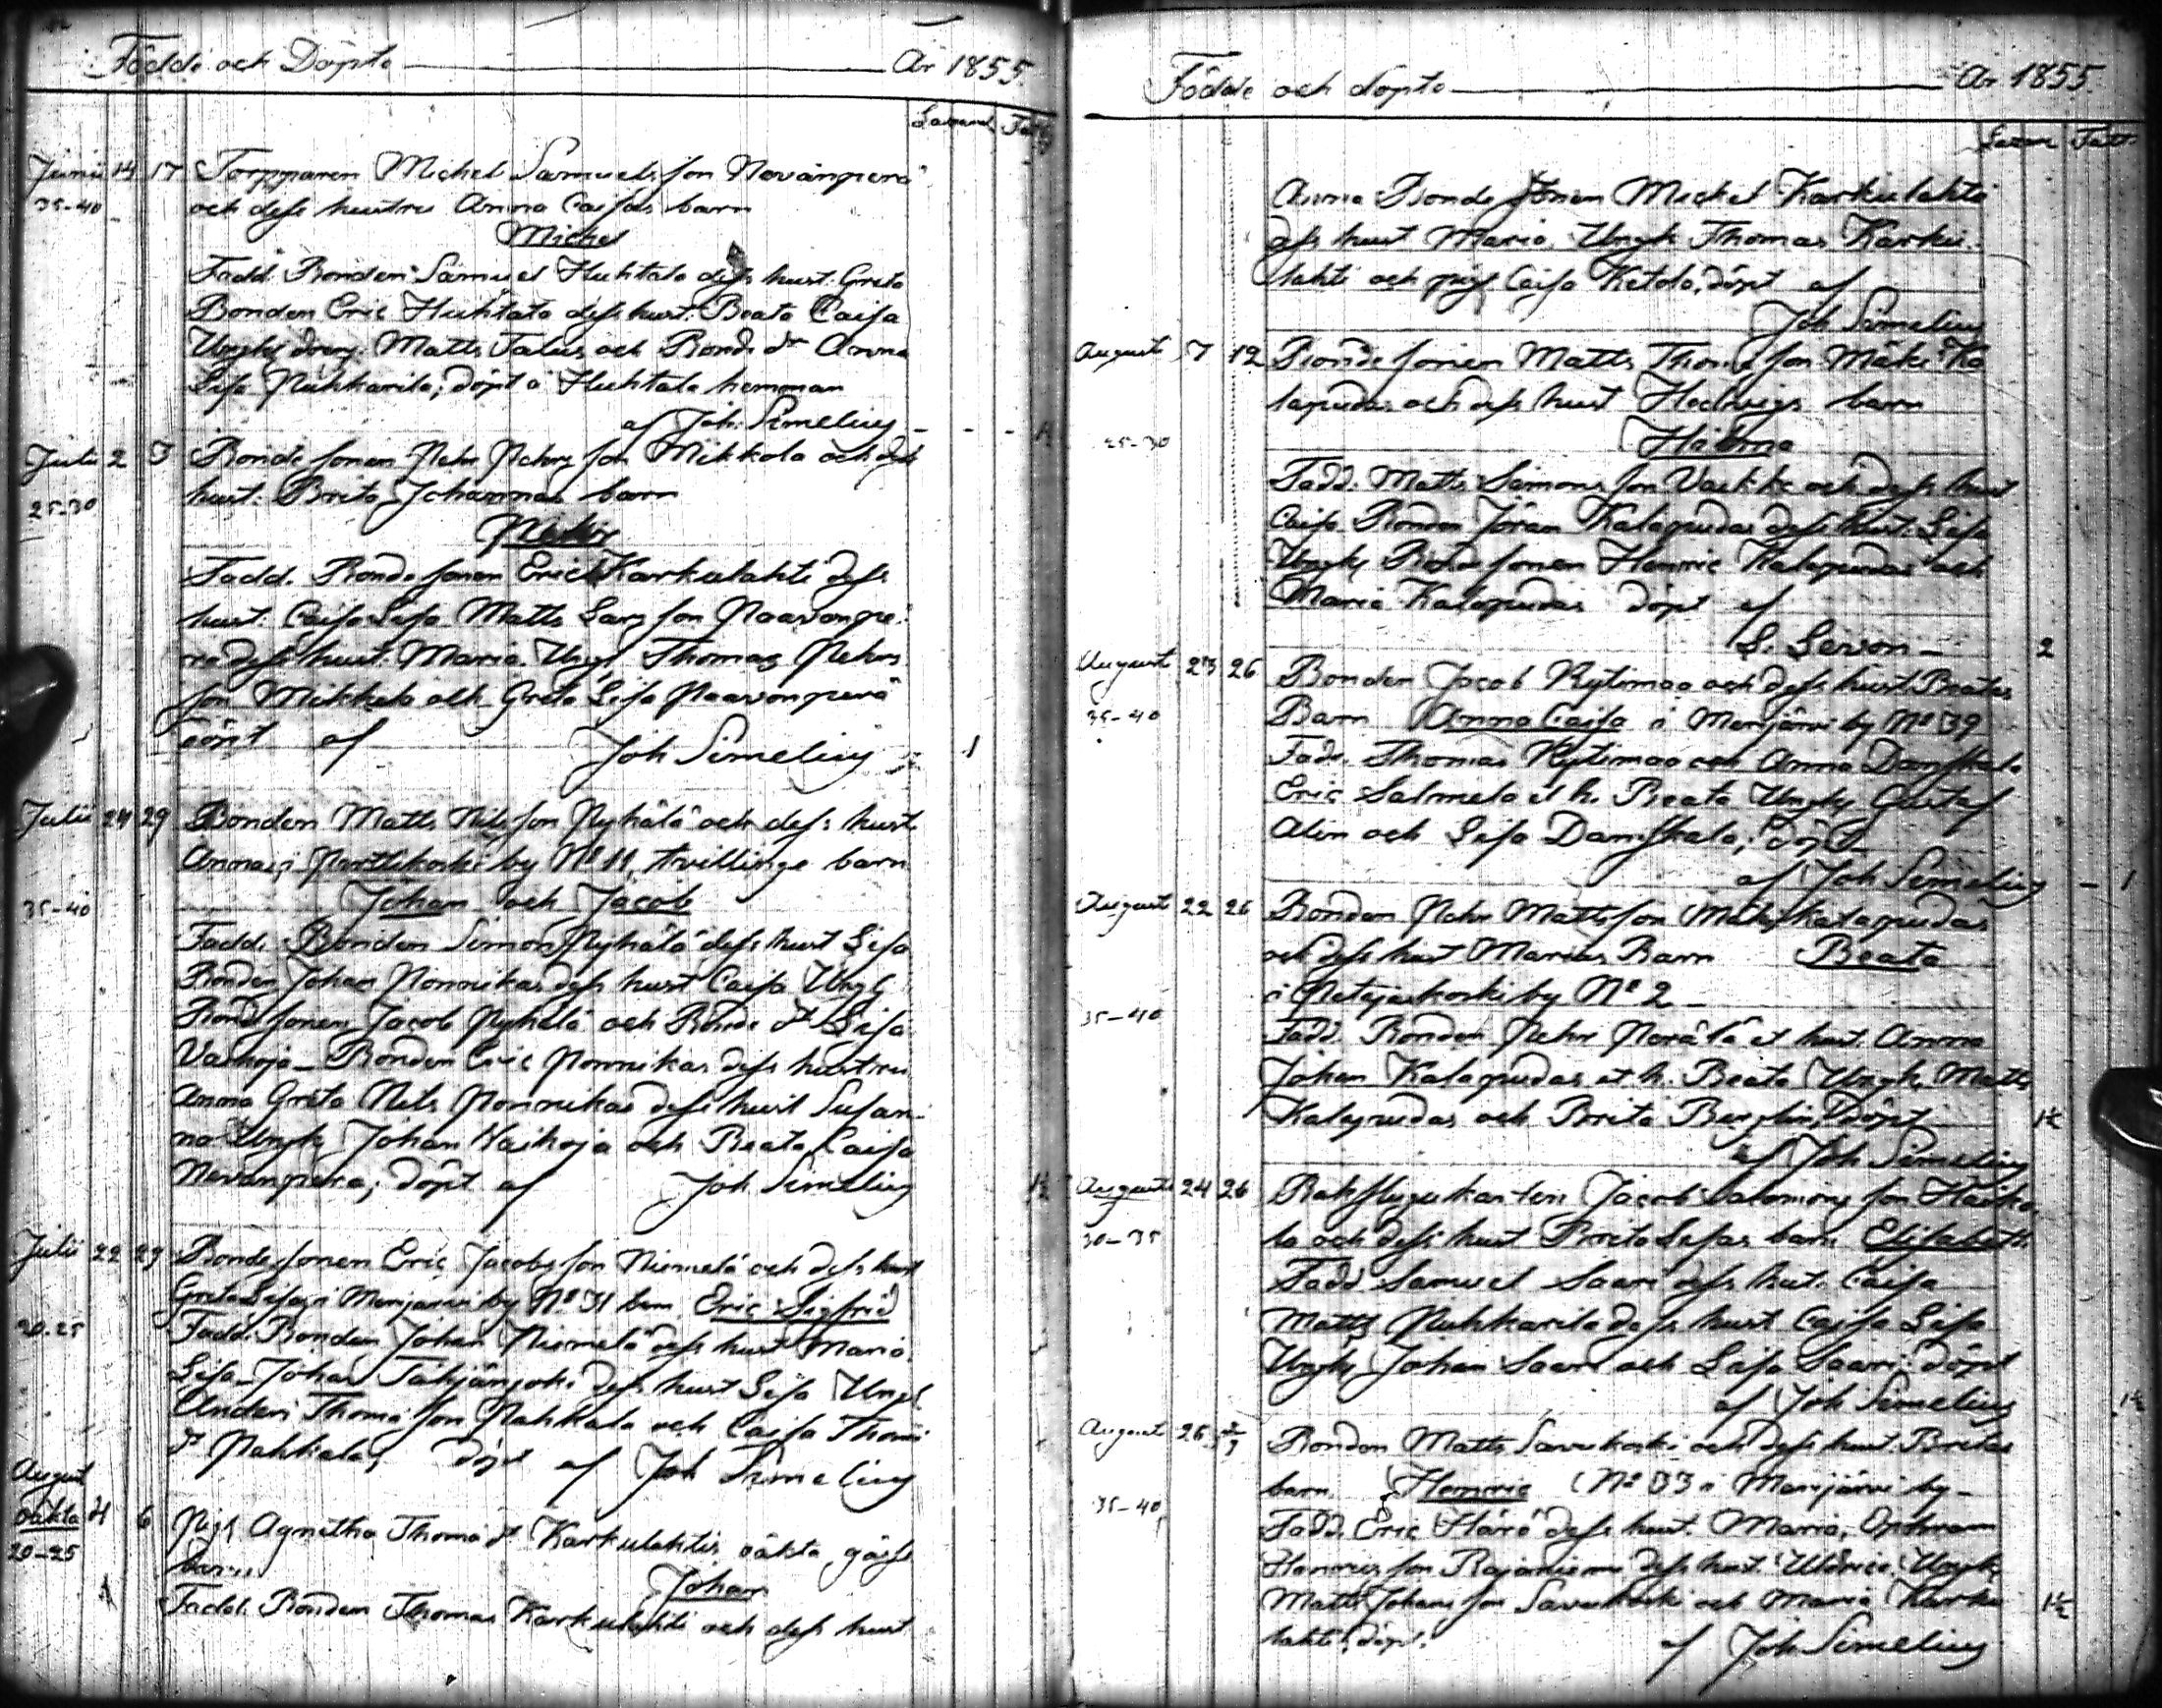 Födde och Döpte År 1855.
Junii 14 17 Torpparen Michel Samuels son Nevanperä
35-40 och dess hustru Anna Caisas barn
Michel
Fadd. Bonden Samuel Huhtala dess hust. Greta
Bonden Eric Huhtala dess hust. Beata Caisa
Ungk. dreng. Matts Talus och Bonde dr Anna
Lisa Puhkarila; döpt å Huhtala hemman
af Joh. Simelius
Julii 2 3 Bonde sonen Pehr Pehrs son Mikkola och dess
25-30 hust. Brita Johannas barn
Fadd. Bonde sonen Eric Karkulahti dess
hust. Caisa Lisa Matts Lars son Paavonpe-
rä dess hust. Maria. Ungk Thomas Pehrs
son Mikkola och Greta Lisa Paavonperä
döpt af Joh Simelius 1
Julii 24 29 Bonden Matts Nils son Pyhälä och dess hust.
Annas i by No 11, tvillinge barn
35-40 Johan och Jacob
Fadd. Bonden Simon Pyhälä dess hust Lisa
Bonden Johan Ponnikas dess hust Caisa Ungk
Bond sonen Jacob Pyhälä och Bonde dr Lisa
Vaihoja - Bonden Eric Ponnikas dess hustru
Anna Greta Nils Ponnikas dess hust Susan-
na Ungk Johan Waihoja och Beata Caisa
Nevanperä; döpt af Joh Simelius 1½
Julii 22 29 Bonde sonen Eric Jacobs son Niemelä och dess hust
Greta Lisas i Merijärvi by No 31 barn Eric Sigfrid
20-25 Fadd. Bonden Johan Niemelä dess hust Maria
Lisa Johan Tähjänjoki dess hust Lisa Ungk
Anders Thomæ son Pahkala och Caisa Thomæ
dr Pahkala; döpt af Joh Simelius
August
oäkta 4 6 Pig. Agnetha Thomæ dr Karkulahtis oäkta gosse
20-25 barn
Johan
Fadd. Bonden Thomas Karkulahti och dess hust

Födde och döpte År 1855.
Anna Bonde sonen Michel Karkulahti
dess hust Maria Ungk Thomas Karku-
lahti och pig. Caisa Ketola, döpt af
Joh Simelius
Augusti 7 12 Bonde sonen Matts Thomæ son Mäki Ka
lapudas och dess hust Hedvigs barn
25-30 Helena
Fadd. Matts Simons son och dess hust
Caisa Bonden Jöran Kalapudas dess hust. Lisa
Ungk. Bonde sonen Henric Kalapudas och
Maria Kalapudas döpt af
S. Servon - 2
August 23 26 Bonden Jacob Rytimaa och dess hust Beatas
35-40 Barn Anna Caisa i Merijärvi by No 39
Fadd. Thomas Rytimaa och Anna Danskala
Eric Salmela et h. Beata Ungk Gustaf
Alin och Lisa Danskala; döpt
af Joh Simelius - 1
August 22 26 Bonden Pehr Matts son Mäkikalapudas
och dess hust Marias Barn Beata
i Petäjäskoski by No 2
35-40 Fadd. Bonden Pehr Perälä et hust. Anna
Johan Kalapudas et h. Beata Ungk. Matts
Kalapudas och Brita Berglin, döpt 1½
af Joh Simelius
Augusti 24 26 Jacob Salomons son
30-35 la och dess hust Brita Lisas barn Elisabeth
Fadd Samuel Saari dess hust. Caisa
Matts Puhkarila dess hust Caisa Lisa
Ungk. Johan Saari och Lisa Saari döpt
af Joh Simelius 1½
August 26 2/9 Bonden Matts Savukoski och dess hust. Britas
barn. Henric (No 33 i Merijärvi by -
35-40 Fadd. Eric Härö dess hust. Maria,
Henrics son Rajaniemi dess hust. Ulrica Ungk.
Matts Johans son Savukoski och Maria Karku 1½
lahti, döpt. af Joh Simelius